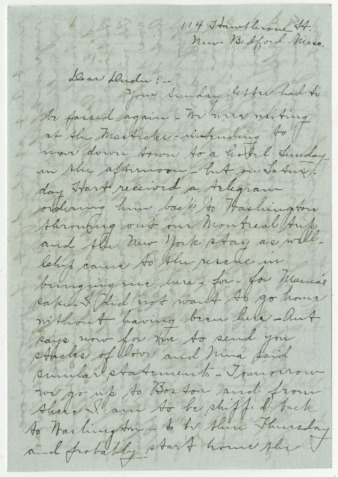 114 Hawthorne St.
New Bedford Mass.
Dear :-
Your Sunday letter had to
be passed again - We were visiting
at the - intending to
move down town to a hotel Sunday
in the afternoon - but on Satur-
day Hart received a telegram
ordering him back to Washington
throwing out our Montreal trip
and the New York stay as well -
came to the rescue in
bringing me here - for - for Mama's
sake I did not want to go home
without having been here - Aunt
says now for me to send you
stacks of love and Nina said
similar statements - Tomorrow
we go up to Boston and from
there I am to be shipped back
to Washington - to be there Thursday
and probably start home the